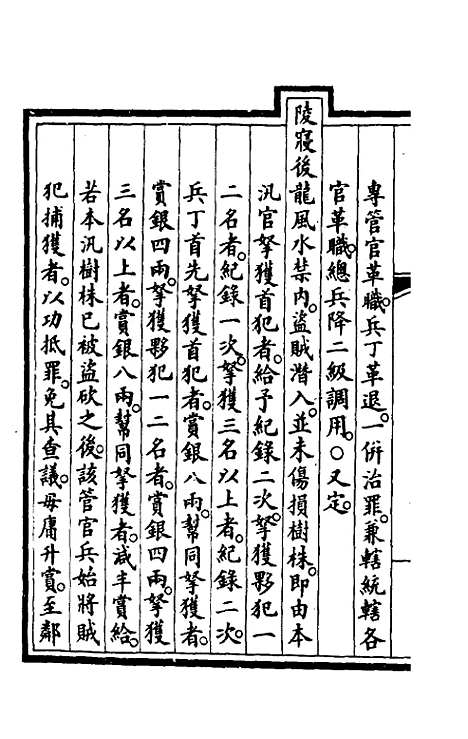 專管官革職。兵丁革退。一併治罪。兼轄統轄各
官革職。總兵降二級調用。○又定。
陵寢後龍風水禁內。盜賊潛入。並未傷損樹株。即由本
汛官拏獲首犯者。給予紀錄二次。拏獲夥犯一
二名者。紀錄一次。拏獲三名以上者。紀錄二次。
兵丁首先拏獲首犯者。賞銀八兩。幫同拏獲者。
賞銀四兩。拏獲夥犯一二名者。賞銀四兩。拏獲
三名以上者。賞銀八兩。幫同拏獲者。減半賞給。
若本汛樹株已被盜砍之後。該管官兵始將賊
犯捕獲者。以功抵罪。免其查議。毋庸升賞。至鄰